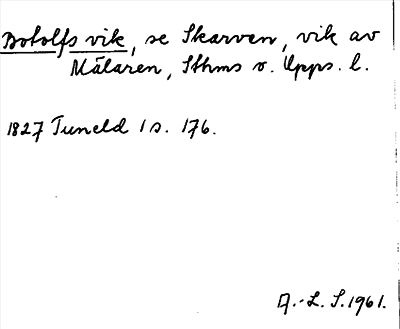 Botolfs vik, se Skarven, vik av
Mälaren, Sthms o. Upps. l.
1827 Tuneld 1 s. 176.
A.-L. S. 1961.